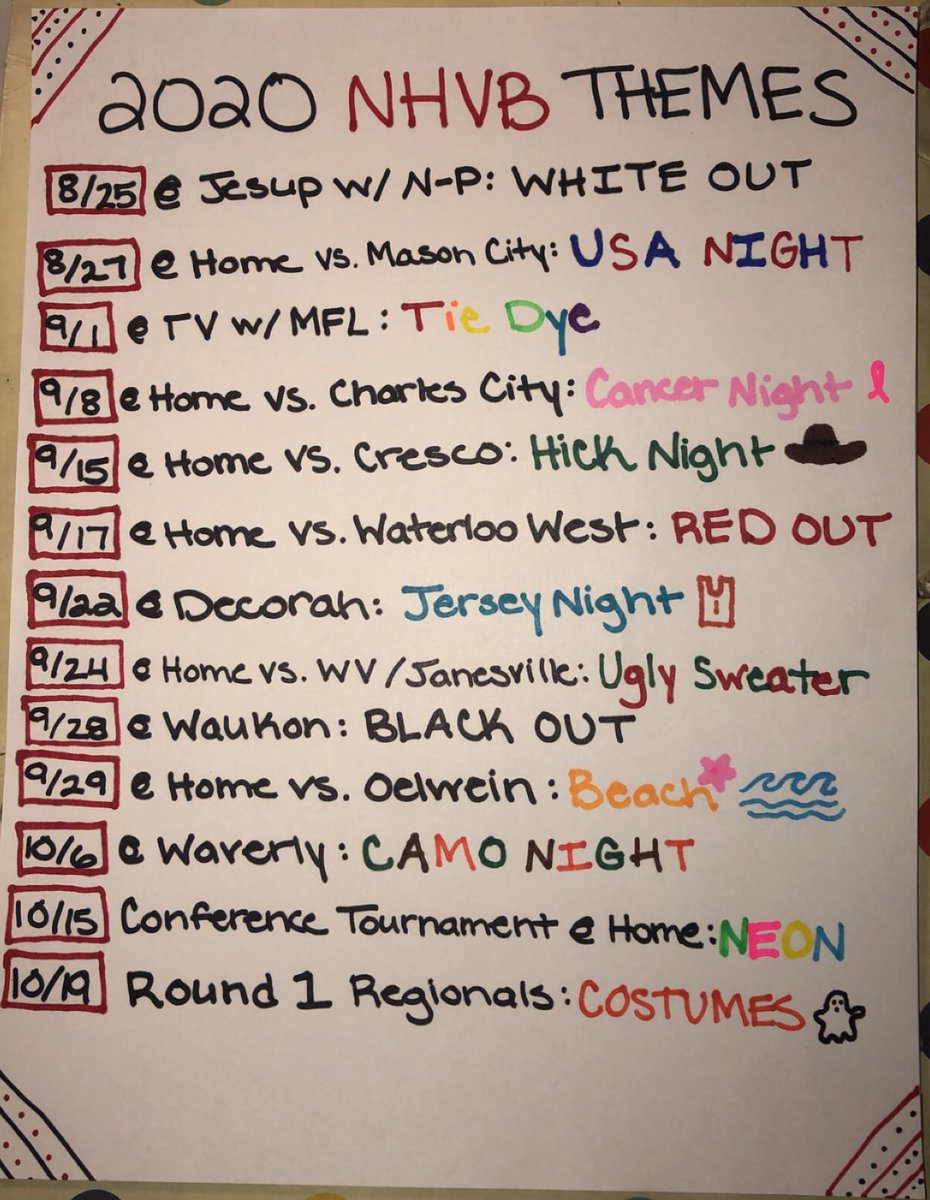 2020 NHVB THEMES
8/25 @ Jesup w/ N-P: WHITE OUT
8/27 @ Home vs. Mason City: USA NIGHT
9/1 @ TV w/ MFL: Tie Dye
9/8 @ Home vs. Charles City: Cancer Night
9/15 @ Home vs. Cresco: Hick Night
9/17 @ Home vs. Waterloo West: RED OUT
9/22 @ Decorah: Jersey Night
9/24 @ Home vs. WV/Janesville: Ugly Sweater
9/28 @ Waukon: BLACK OUT
9/29 @ Home vs. Oelwein: Beach
10/6 @ Waverly: CAMO NIGHT
10/15 Conference Tournament @ Home: NEON
10/19 Round 1 Regionals: COSTUMES